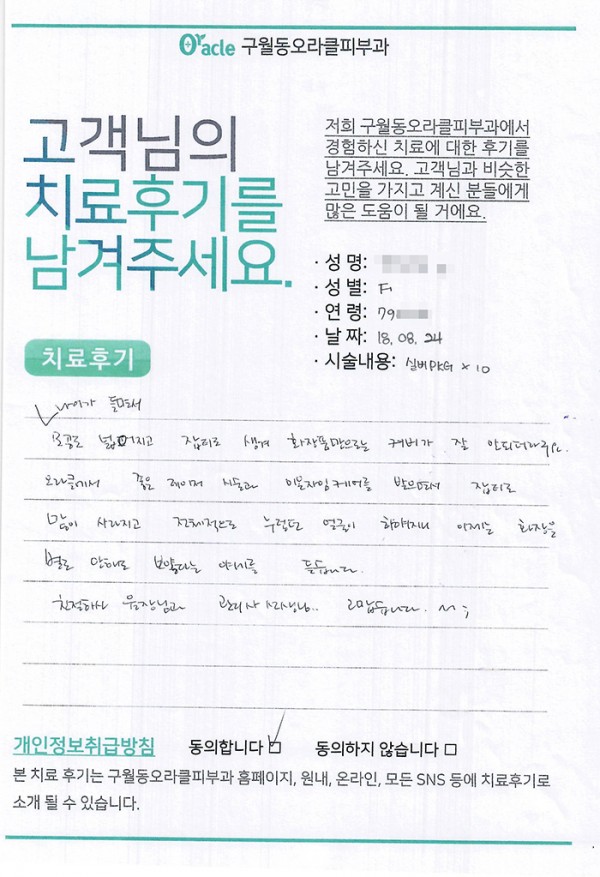 Oracle 구월동오라클피부과
고객님의
치료후기를
남겨주세요.
저희 구월동오라클피부과에서
경험하신 치료에 대한 후기를
남겨주세요. 고객님과 비슷한
고민을 가지고 계신 분들에게
많은 도움이 될 거예요.
· 성 명:
· 성 별: F
· 연 령: 79
· 날 짜: 18. 08. 24
· 시술내용: 실버PKG × 10
치료후기
나이가 들면서
모공도 넓어지고 잡티도 생겨 화장품만으로는 커버가 잘 안되더라구요.
오라클에서 꽃은 레이저 시술과 이온자임케어를 받으면서 잡티도
많이 사라지고 전체적으로 누렇던 얼굴이 하얘지니 이제는 화장을
별로 안해도 뽀얗다는 얘기를 듣습니다.
친절하신 원장님과 관리사 선생님.. 고맙습니다. ~ ;
개인정보취급방침 동의합니다 동의하지 않습니다
본 치료 후기는 구월동오라클피부과 홈페이지, 원내, 온라인, 모든 SNS 등에 치료후기로
소개 될 수 있습니다.